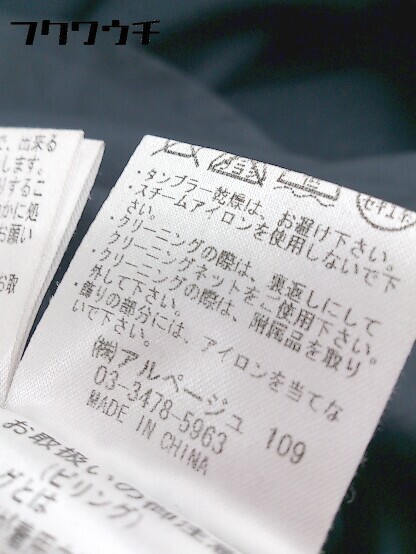 フクワウチ
、出来る
します。
りするこ
やかに処
お願い
お取
セキユ
・タンブラー乾燥は、お避け下さい。
・スチームアイロンを使用しないで下
さい。
・クリーニングの際は、裏返しにして
クリーニングネットをご使用下さい。
・クリーニングの際は、附属品を取り
外して下さい。
・飾りの部分には、アイロンを当てな
いで下さい。
㈱アルページュ
03-3478-5963 109
MADE IN CHINA
お取扱いの御注意
(ピリング)
グとは